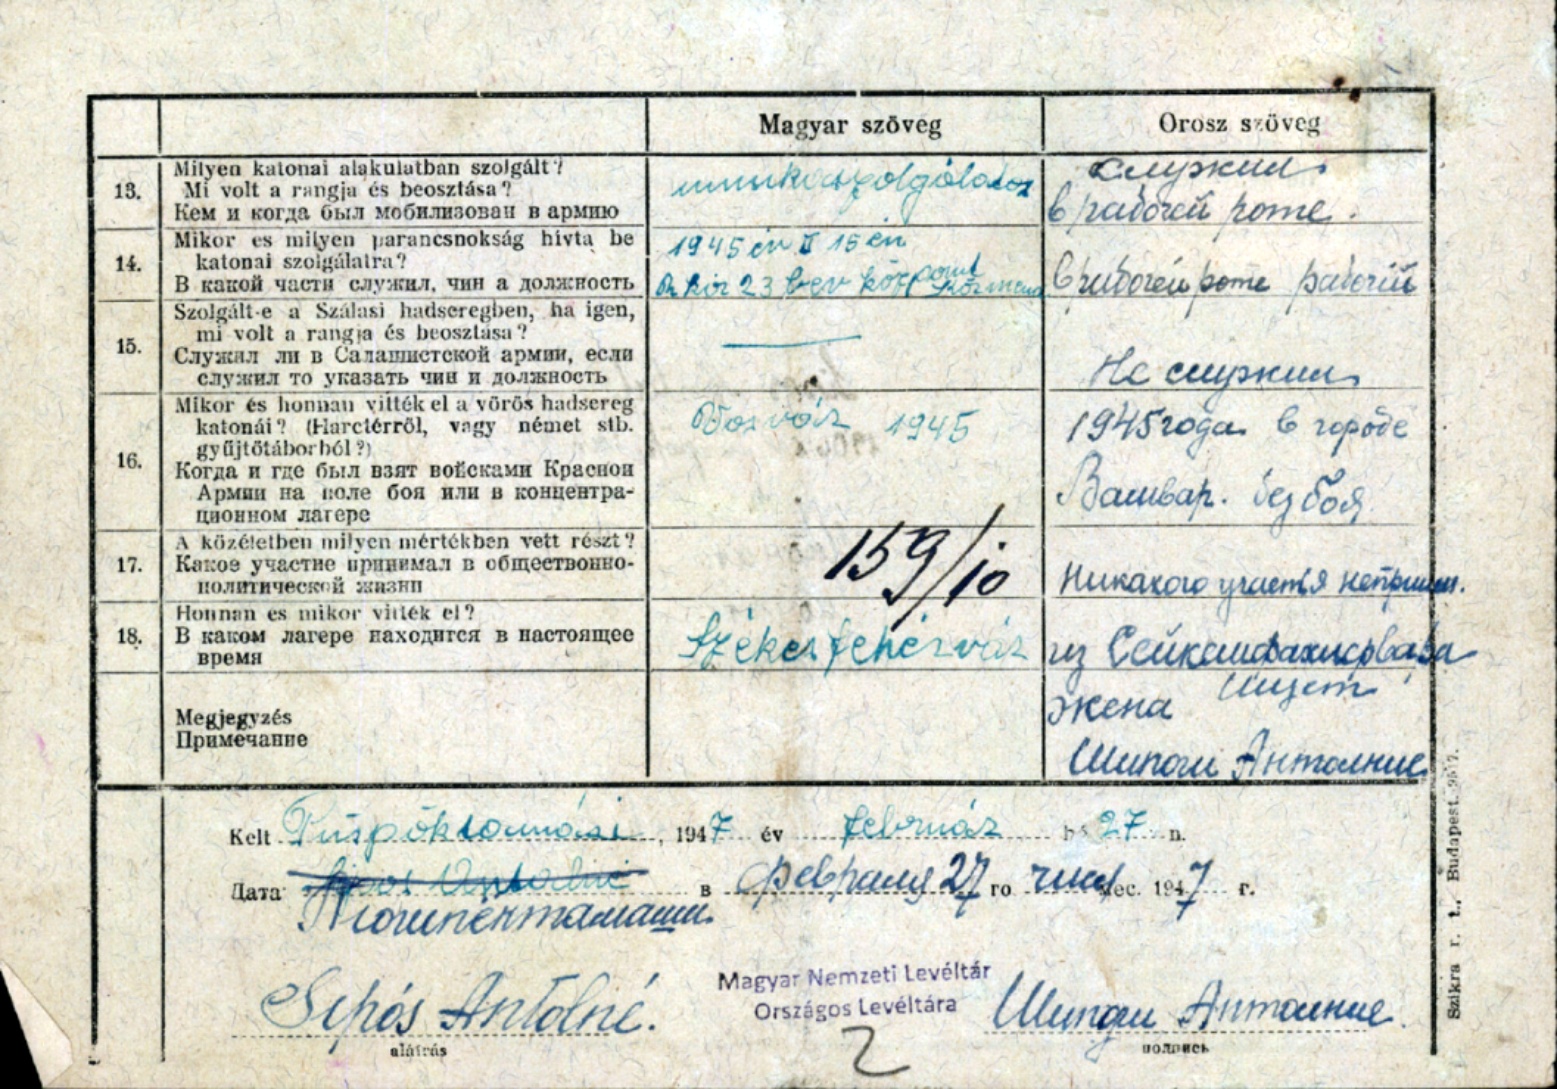 Magyar szöveg
Orosz szöveg
13.
Milyen katonai alakulatban szolgált?
Mi volt a rangja és beosztása?
Кем и когда был мобилизован в армию
munkaszolgálatos
служил
в рабочей роте.
14.
Mikor es milyen parancsnokság hívta be
katonai szolgálatra?
В какой части служил, чин а должность
1945 én II 15 én
23 bev központ
в рабочей роте рабочий
15.
Szolgált-e a Szálasi hadseregben, ha igen,
mi volt a rangja és beosztása?
Служил ли в Салашистской армии, если
служил то указать чин и должность
Не служил
16.
Mikor és honnan vitték el a vörös hadsereg
katonái? (Harctérről, vagy német stb.
gyűjtőtáborból?)
Когда и где был взят войсками Красной
Армии на поле боя или в концентра-
ционном лагере
Vasvár 1945
1945 года в городе
Вашвар. без боя
17.
A közéletben milyen mértékben vett részt?
Какое участие принимал в общественно-
политической жизни
159/10
Никакого участья
18.
Honnan es mikor vitték el?
В каком лагере находится в настоящее
время
Székesfehérvár
из
Megjegyzés
Примечание
жена
Шипош Антолние
Kelt Püspöktamási, 1947 év február hó 27 n.
Дата
в Февраля 27 го мес. 1947 г.
Sipős Antolné.
aláírás
Magyar Nemzeti Levéltár
Országos Levéltára
2
Шипош Антолние.
подпись
Szikra r. t., Budapest.